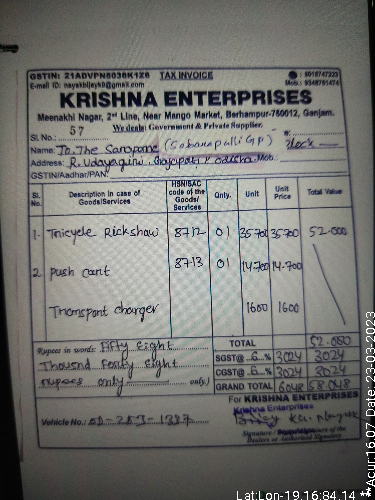 GSTIN: 21ADVPN8036K1Z6 TAX INVOICE : 9018747223
E-mail ID: nayakbijayk9@gmail.com Mob.: 9348761474
KRISHNA ENTERPRISES
Meenakhi Nagar, 2nd Line, Near Mango Market, Berhampur-760012, Ganjam.
We deals: Government & Private Supplier.
Sl. No.: 57
Name: To. The Sarapanc (Sabarapalli GP)
Address: R. Udayagiri, Gajapati, odisha Mob.
GSTIN/Aadhar/PAN:
Sl. No. Description in case of Goods/Services HSN/SAC code of the Goods/Services Qnty. Unit Unit Price Total Value
1. Tricycle Rickshaw 8712 01 35700 35700 52-000
2 push cart 8713 01 14700 14-700
Transport charger 1600 1600
Rupees in words: Fifty Eight TOTAL 52.000
Thousand Fourty Eight SGST@ 6 % 3024 3024
rupees only only.) CGST@ 6 % 3024 3024
GRAND TOTAL 6048 58.048
For KRISHNA ENTERPRISES
Krishna Enterprises
Vehicle No.:
Signature
Lat:Lon-19.16:84.14 **Acur:16.07 Date: 23-03-2023